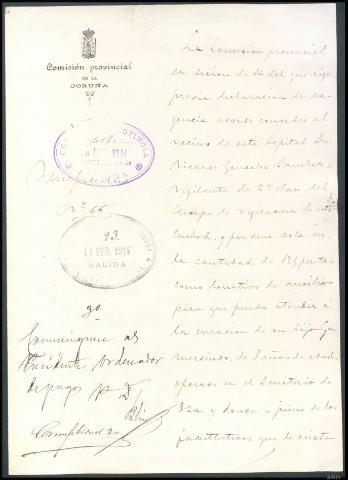 Comisión provincial
DE LA
CORUÑA
FEB. 1914
Beneficencia
Nº 66
93
14 FEB. 1914
SALIDA
Comuníquese al
Presidente Ordenador
de pagos P. D.
Cumplido 20
La Comisión provincial
en sesion de 14 del que rige
previa declaracion de ur-
gencia acordó conceder al
vecino de esta Capital Dn.
Ricardo Gonzalez Sanchez
Vigilante de 2ª clase del
Cuerpo de Vigilancia de esta
Ciudad, y por una sola vez
la cantidad de pesetas
como donativo de auxilio
para que pueda atender á
la curacion de su hijo Gu-
mersindo, de 8 años de edad,
operado en el Sanatorio de
Oza y donde, á juicio de los
facultativos, que le asisten